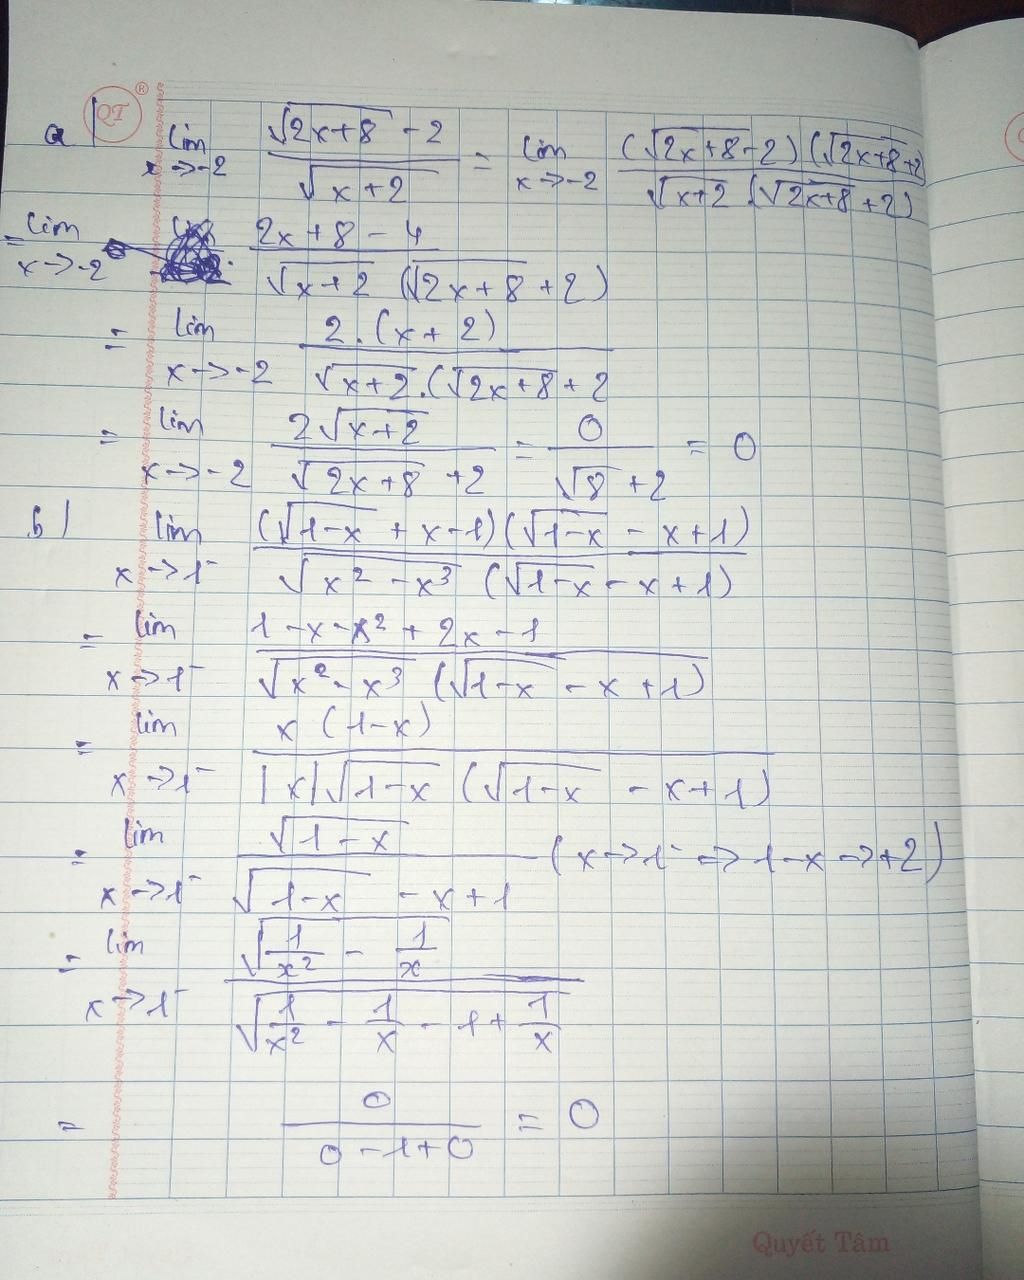 QT ®
a) lim x→-2 (√(2x+8) - 2)/√(x+2) = lim x→-2 ((√(2x+8) - 2)(√(2x+8) + 2))/(√(x+2) (√(2x+8) + 2))
= lim x→-2 (2x+8-4)/(√(x+2) (√(2x+8) + 2))
= lim x→-2 (2.(x+2))/(√(x+2).(√(2x+8) + 2
= lim x→-2 (2√(x+2))/(√(2x+8) + 2) = 0/(√8 + 2) = 0
b) lim x→1⁻ ((√(1-x) + x-1)(√(1-x) - x+1))/(√(x²-x³) (√(1-x) - x+1))
= lim x→1⁻ (1-x-x²+2x-1)/(√(x²-x³) (√(1-x) - x+1))
= lim x→1⁻ (x(1-x))/(|x|√(1-x) (√(1-x) - x+1))
= lim x→1⁻ √(1-x)/(√(1-x) - x+1) (x→1⁻ => 1-x→+2)
= lim x→1⁻ √(1/x² - 1/x)/√(1/x² - 1/x - 1 + 1/x)
= 0/(0-1+0) = 0
Quyết Tâm